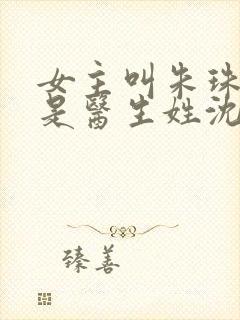 女主叫朱珠
是醫生姓沈
臻善